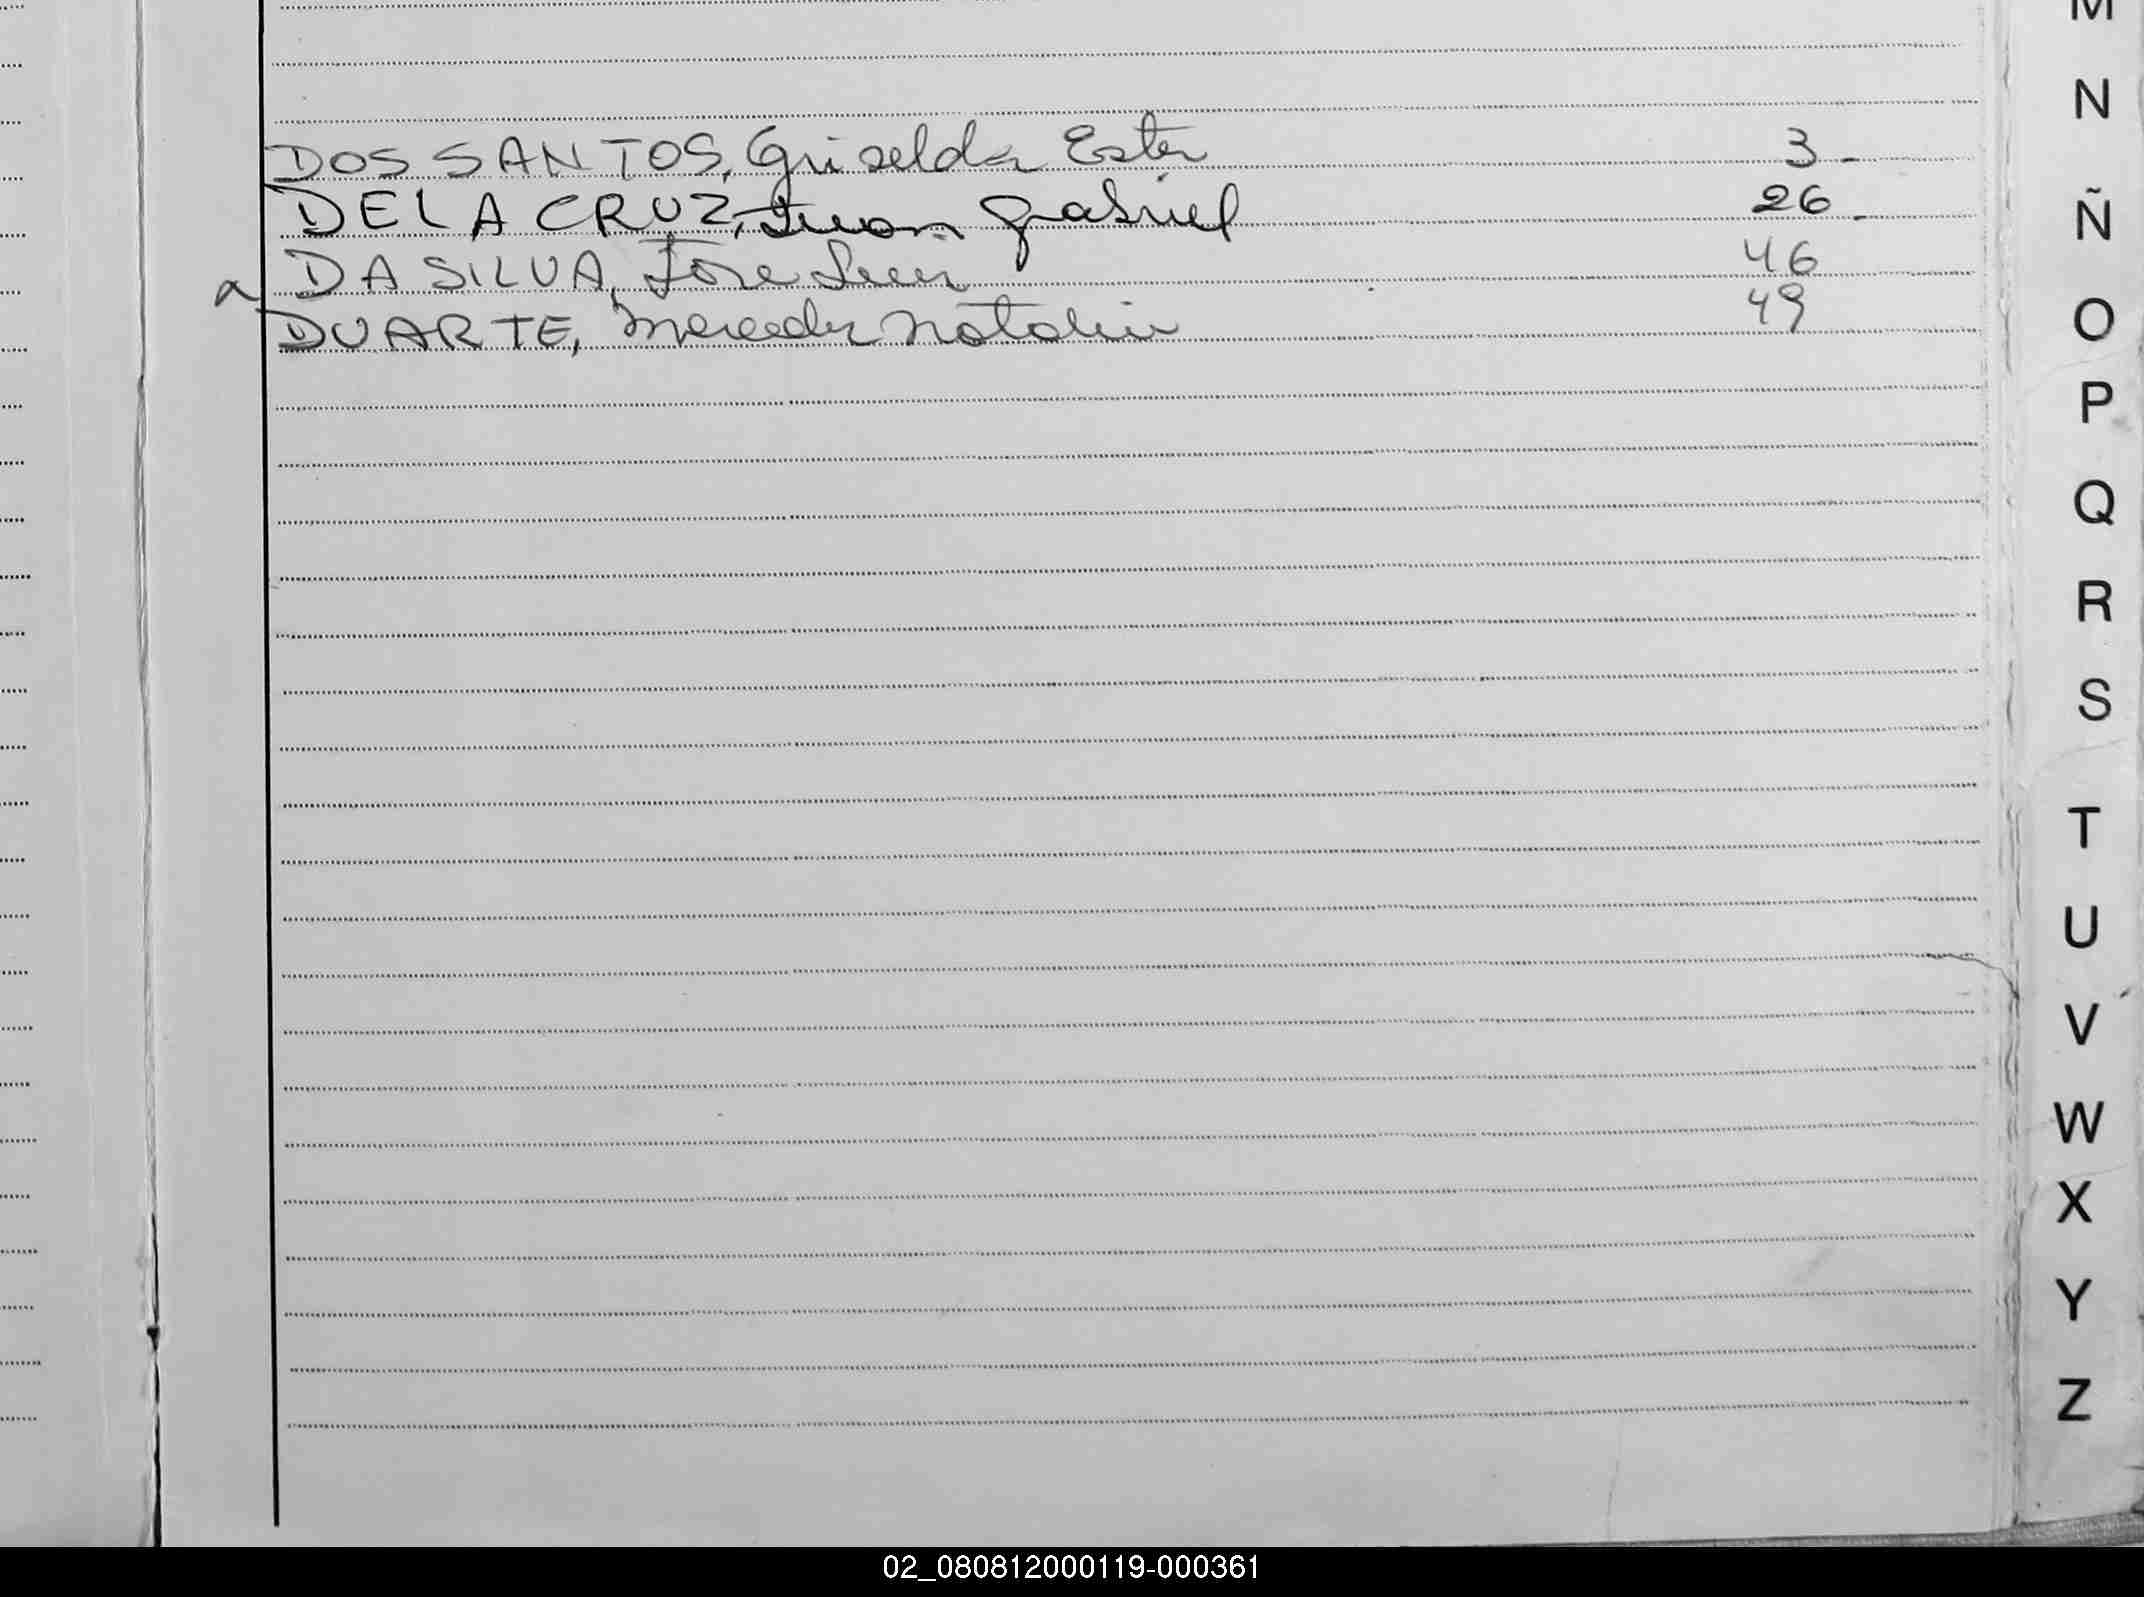 DOS SANTOS, Griselda Ester 3-
DE LA CRUZ, Juan Gabriel 26-
DA SILVA, Jose Luis 46
a DUARTE, Mercedes Natalia 49
M
N
Ñ
O
P
Q
R
S
T
U
V
W
X
Y
Z
02_080812000119-000361